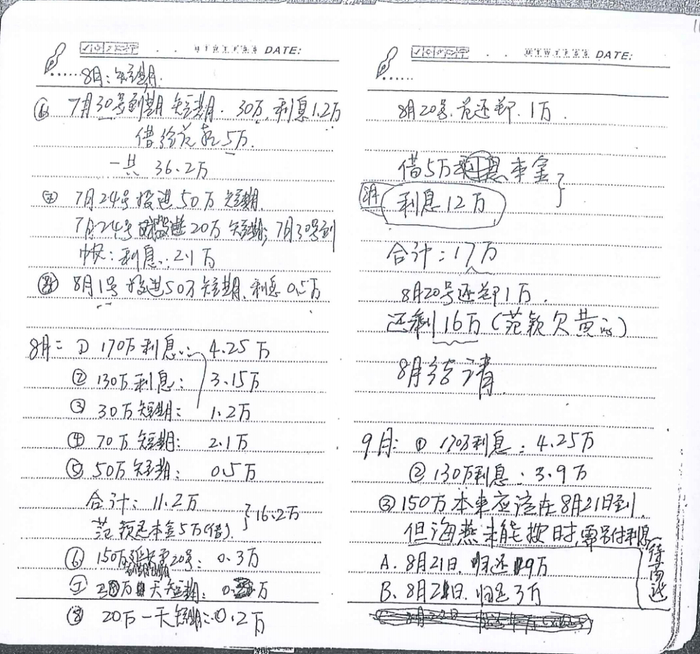 DATE:
8月：短期
⑥ 7月30号到期短期. 30万, 利息1.2万
借给范颖5万.
一共 36.2万
7月24号投进50万短期
7月24号 进20万短期; 7月30号到
利息: 2.1万
8月1号投进50万短期, 利息0.5万
8月: ① 170万利息: 4.25万
② 130万利息: 3.15万
③ 30万短期: 1.2万
④ 70万短期: 2.1万
⑤ 50万短期: 0.5万
合计: 11.2万
范颖还本金5万(借). } 16.2万
⑥ 150万 20号: 0.3万
⑦ 一天短期:
⑧ 20万一天短期: 0.2万
DATE:
8月20号. 范还 1万
借5万 本金
8月 利息12万
合计: 17万
8月20号还 1万.
还剩16万(范颖欠黄)
8月结清
9月: ① 170万利息: 4.25万
② 130万利息: 3.9万
③ 150万本来应该在8月21日到.
但海燕未能按时, 需另付利息
A. 8月21日. 归还 9万
B. 8月2日. 归还3万